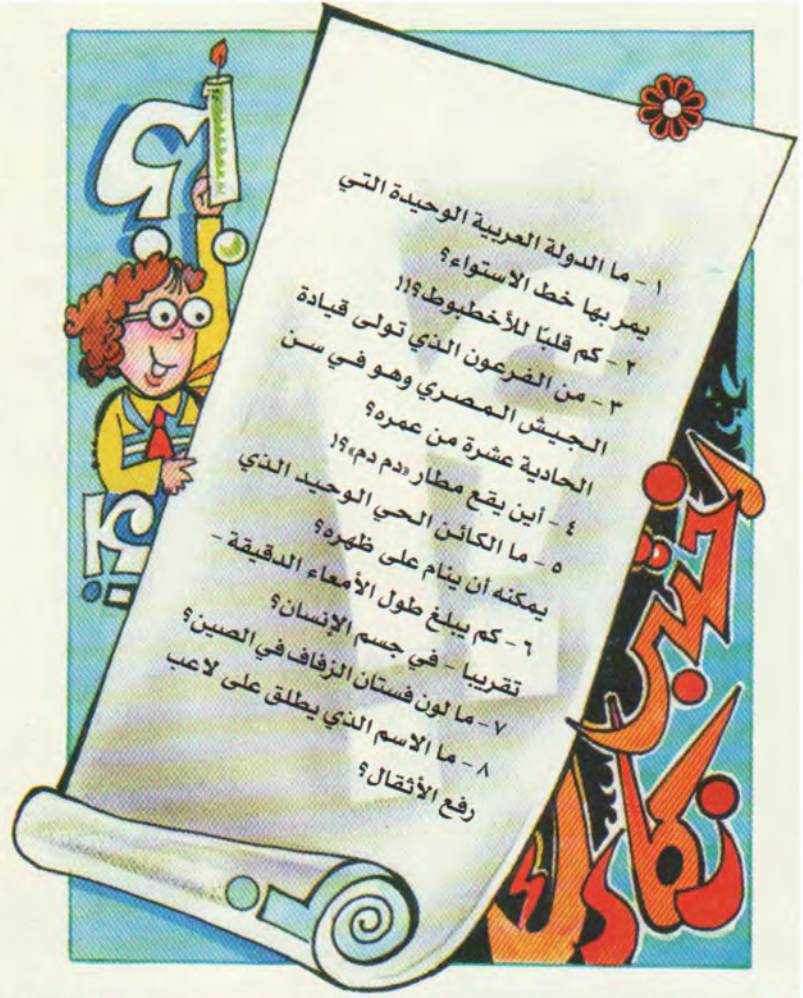 ١ - ما الدولة العربية الوحيدة التي
يمر بها خط الاستواء؟
٢ - كم قلبًا للأخطبوط؟!!
٣ - من الفرعون الذي تولى قيادة
الجيش المصري وهو في سن
الحادية عشرة من عمره؟
٤ - أين يقع مطار «دم دم»؟!
٥ - ما الكائن الحي الوحيد الذي
يمكنه أن ينام على ظهره؟
٦ - كم يبلغ طول الأمعاء الدقيقة -
تقريبا - في جسم الإنسان؟
٧ - ما لون فستان الزفاف في الصين؟
٨ - ما الاسم الذي يطلق على لاعب
رفع الأثقال؟
اختبر
ذكاءك